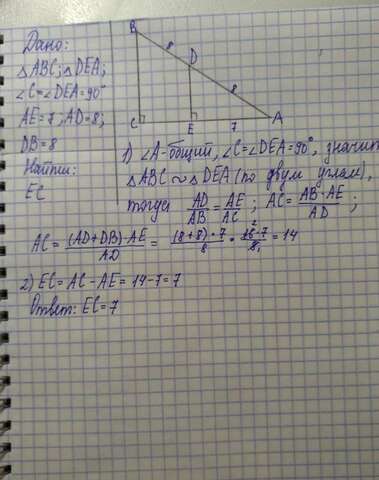 Дано:
△ABC; △DEA;
∠C=∠DEA=90°
AE=7; AD=8;
DB=8
Найти:
EC
B
8
D
8
C
E
7
A
1) ∠A-общий, ∠C=∠DEA=90°, значит
△ABC ∾ △DEA (по двум углам),
тогда AD/AB = AE/AC; AC = AB·AE/AD;
AC = (AD+DB)·AE/AD = (8+8)·7/8 = 16·7/8 = 14
2) EC = AC - AE = 14-7=7
Ответ: EC=7